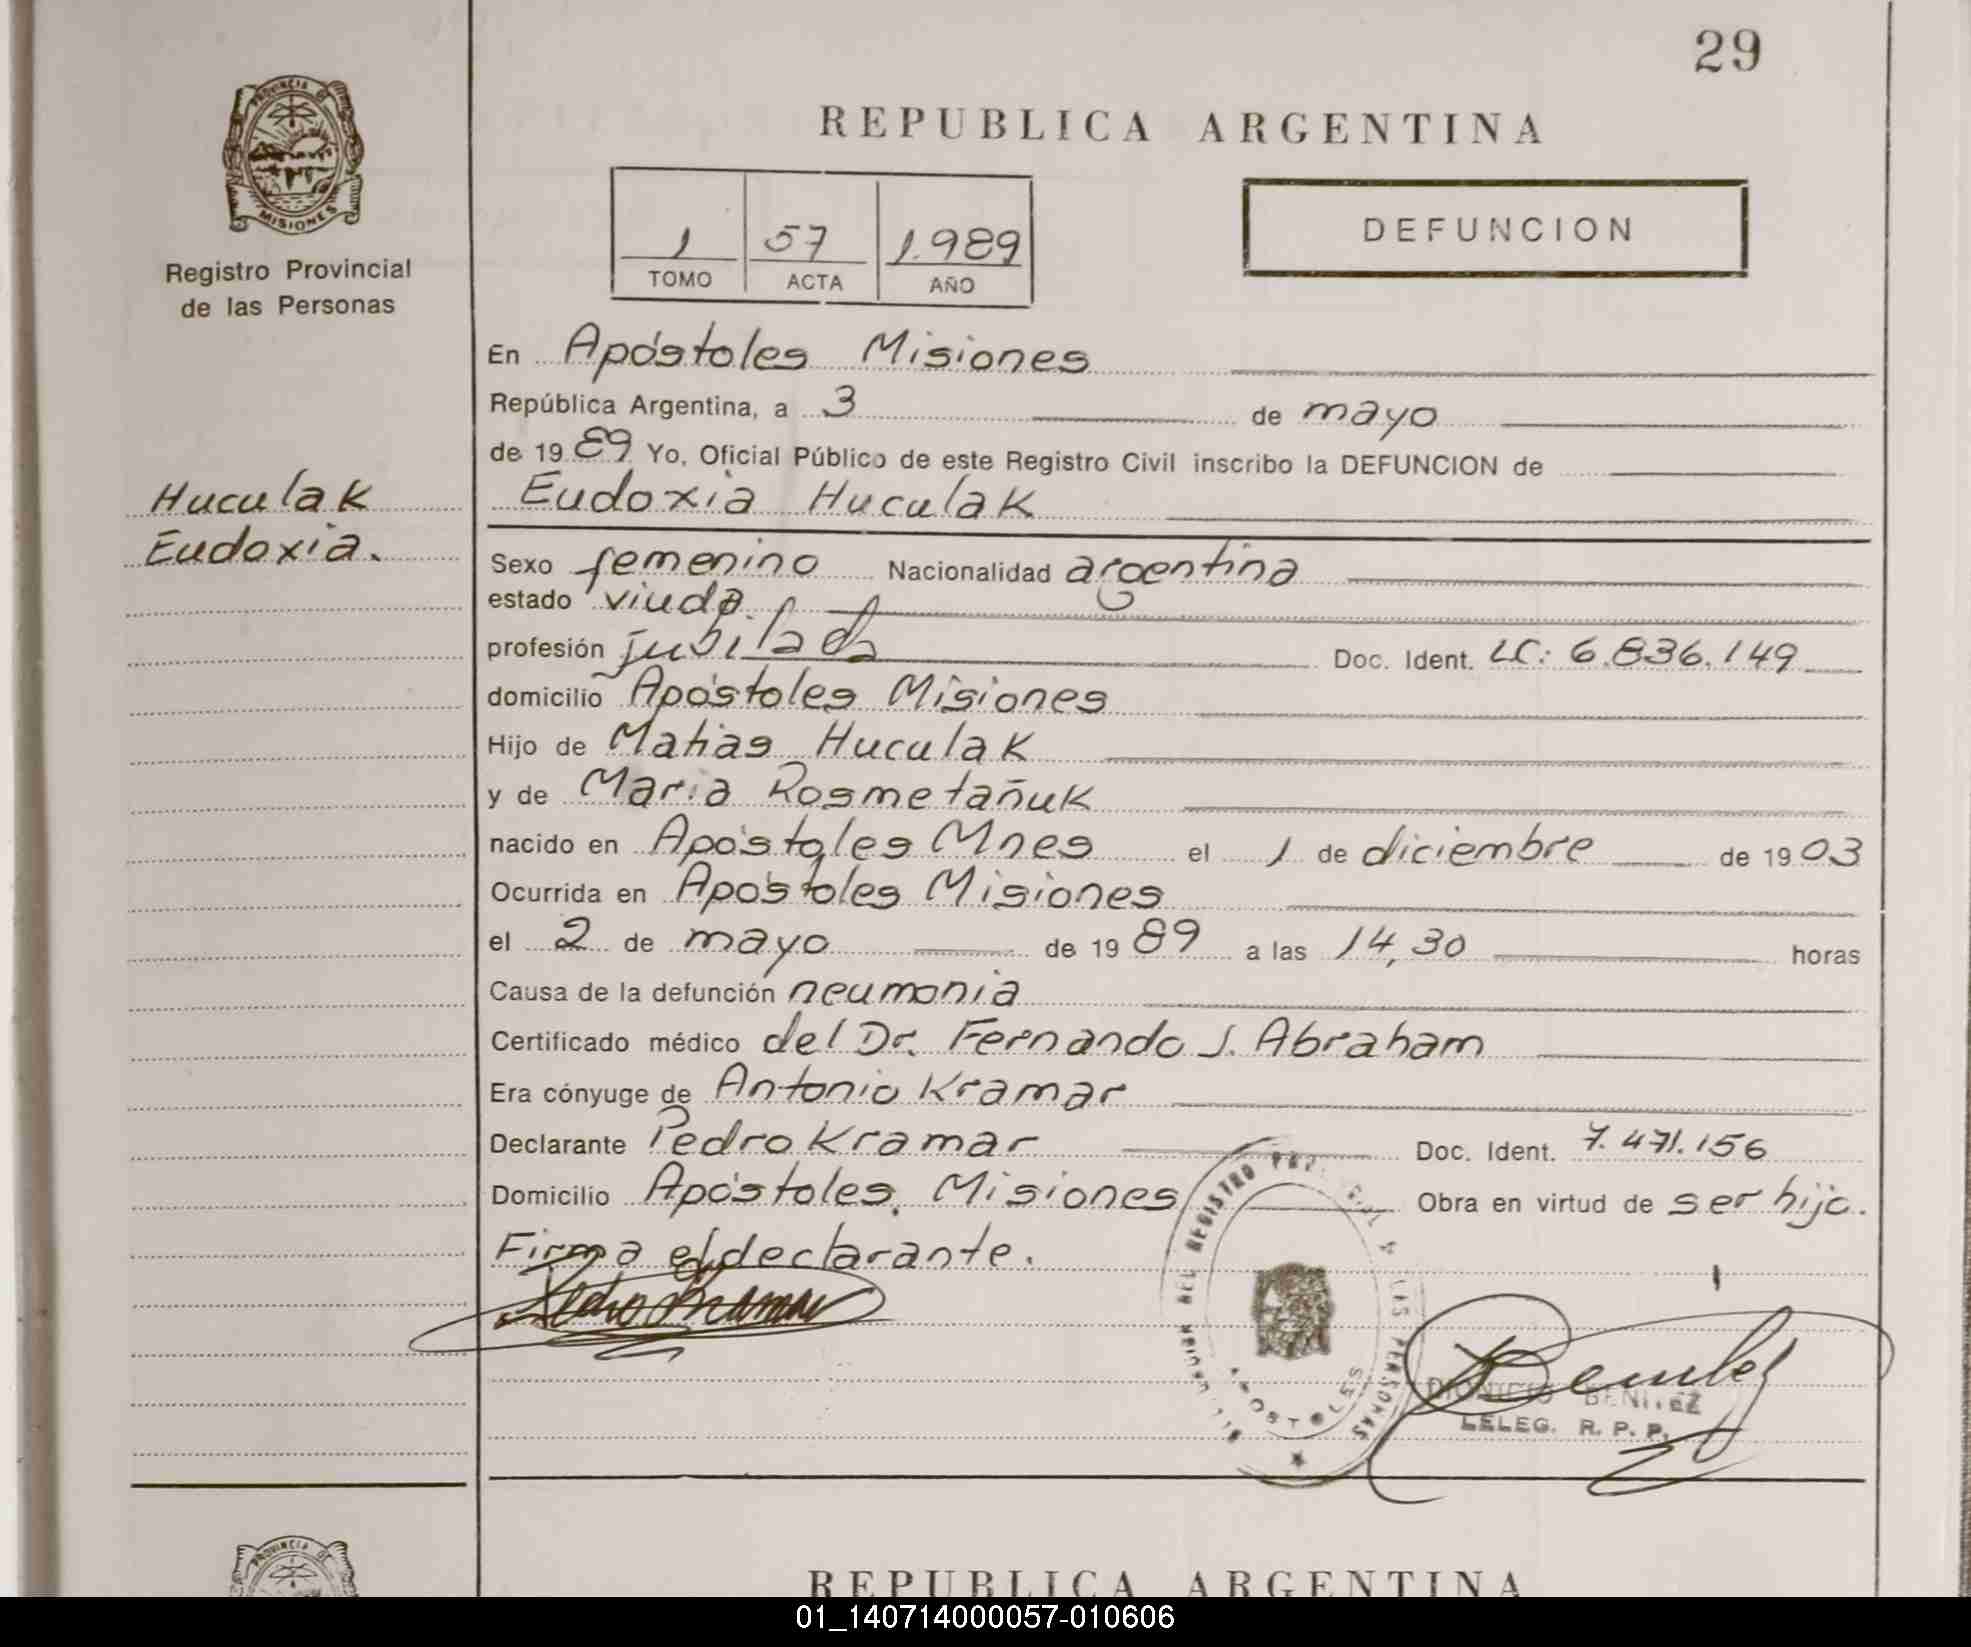 29
PROVINCIA DE
MISIONES
Registro Provincial
de las Personas
REPUBLICA ARGENTINA
1 57 1.989
TOMO ACTA AÑO
DEFUNCION
En Apóstoles Misiones
República Argentina, a 3 de mayo
de 1989 Yo, Oficial Público de este Registro Civil inscribo la DEFUNCION de
Eudoxia Huculak
Huculak
Eudoxia.
Sexo femenino Nacionalidad argentina
estado viuda
profesión jubilada Doc. Ident. LC: 6.836.149
domicilio Apóstoles Misiones
Hijo de Matias Huculak
y de Maria Rosmetañuk
nacido en Apóstoles Mnes el 1 de diciembre de 1903
Ocurrida en Apóstoles Misiones
el 2 de mayo de 1989 a las 14,30 horas
Causa de la defunción neumonia
Certificado médico del Dr. Fernando J. Abraham
Era cónyuge de Antonio Kramar
Declarante Pedro Kramar Doc. Ident. 7.471.156
Domicilio Apóstoles, Misiones Obra en virtud de ser hijo.
Firma el declarante.
Pedro Kramar
DEL REGISTRO LAS PERSONAS
APOSTOLES
Benitez
DIONICIO BENITEZ
DELEG. R. P. P.
PROVINCIA DE
REPUBLICA ARGENTINA
01_140714000057-010606